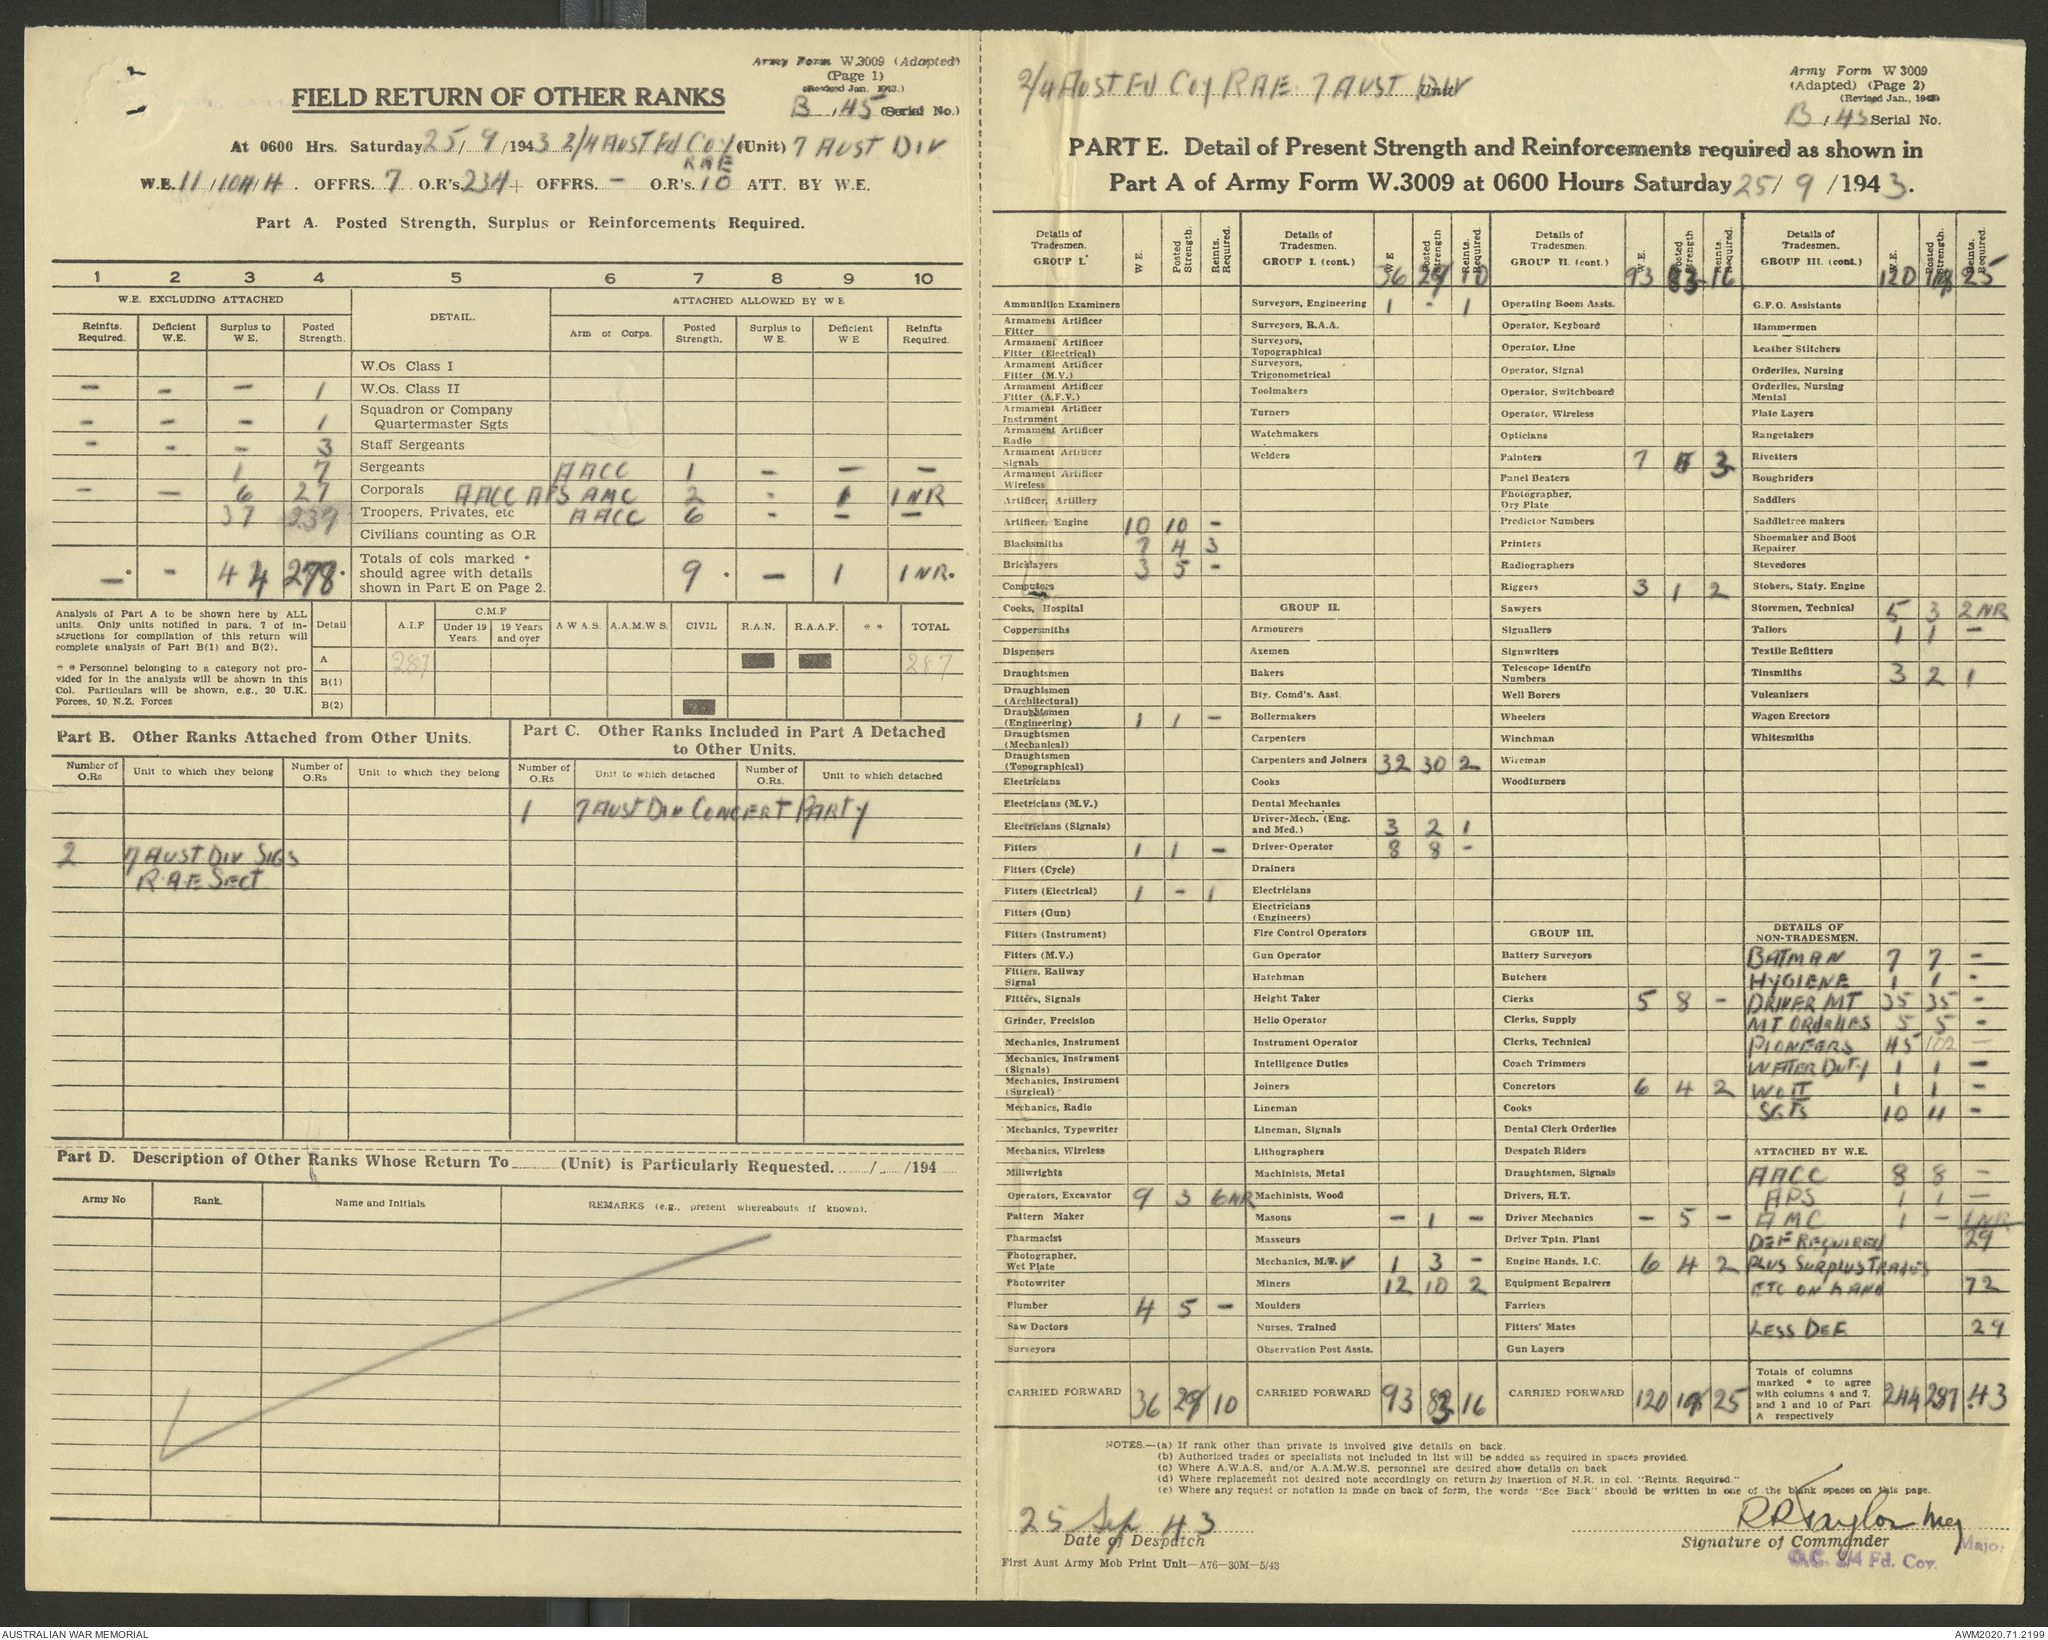 Army Form W.3009 (Adapted)
(Page 1)
(Revised Jan. 1943.)
FIELD RETURN OF OTHER RANKS
B 145 (Serial No.)
At 0600 Hrs. Saturday 25/9/1943 2/4 AUST FD COY RAE (Unit) 7 AUST DIV
W.E. 11/104/4. OFFRS. 7 O.R's. 234 + OFFRS. – O.R's. 10 ATT. BY W.E.
Part A. Posted Strength, Surplus or Reinforcements Required.
1 2 3 4 5 6 7 8 9 10
W.E. EXCLUDING ATTACHED DETAIL. ATTACHED ALLOWED BY W E
Reinfts. Required. Deficient W.E. Surplus to W E. Posted Strength. Arm or Corps. Posted Strength. Surplus to W E. Deficient W E Reinfts Required.
W.Os Class I
– – – 1 W.Os. Class II
– – – 1 Squadron or Company Quartermaster Sgts
– – – 3 Staff Sergeants
1 7 Sergeants AACC 1 – – –
– – 6 27 Corporals AACC APS AMC 2 – 1 1NR
37 239 Troopers, Privates, etc AACC 6 – – –
Civilians counting as O.R
–* – 44 278* Totals of cols marked * should agree with details shown in Part E on Page 2. 9 * – 1 1NR*
Analysis of Part A to be shown here by ALL units. Only units notified in para. 7 of instructions for compilation of this return will complete analysis of Part B(1) and B(2).
* * Personnel belonging to a category not provided for in the analysis will be shown in this Col. Particulars will be shown, e.g., 20 U.K. Forces, 10 N.Z. Forces
Detail A.I.F C.M.F Under 19 Years. 19 Years and over A W A S. A.A.M.W S. CIVIL R.A.N. R.A.A.F. * * TOTAL
A 287 287
B(1)
B(2)
Part B. Other Ranks Attached from Other Units.
Number of O.Rs Unit to which they belong Number of O.Rs Unit to which they belong
2 7 AUST DIV SIGS
R.A.E SECT
Part C. Other Ranks Included in Part A Detached to Other Units.
Number of O.Rs Unit to which detached Number of O.Rs. Unit to which detached
1 7 AUST DIV CONCERT PARTY
Part D. Description of Other Ranks Whose Return To (Unit) is Particularly Requested. / /194
Army No Rank. Name and Initials REMARKS (e.g., present whereabouts if known).
2/4 AUST FD COY RAE 7 AUST DIV Unit
Army Form W 3009
(Adapted) (Page 2)
(Revised Jan., 1943)
B 145 Serial No.
PART E. Detail of Present Strength and Reinforcements required as shown in
Part A of Army Form W.3009 at 0600 Hours Saturday 25/9/1943.
Details of Tradesmen. GROUP I. W E. Posted Strength. Reints. Required.
Ammunition Examiners
Armament Artificer Fitter
Armament Artificer Fitter (Electrical)
Armament Artificer Fitter (M.V.)
Armament Artificer Fitter (A.F.V.)
Armament Artificer Instrument
Armament Artificer Radio
Armament Artificer Signals
Armament Artificer Wireless
Artificer, Artillery
Artificer, Engine 10 10 –
Blacksmiths 7 4 3
Bricklayers 3 5 –
Computors
Cooks, Hospital
Coppersmiths
Dispensers
Draughtsmen
Draughtsmen (Architectural)
Draughtsmen (Engineering) 1 1 –
Draughtsmen (Mechanical)
Draughtsmen (Topographical)
Electricians
Electricians (M.V.)
Electricians (Signals)
Fitters 1 1 –
Fitters (Cycle)
Fitters (Electrical) 1 – 1
Fitters (Gun)
Fitters (Instrument)
Fitters (M.V.)
Fitters, Railway Signal
Fitters, Signals
Grinder, Precision
Mechanics, Instrument
Mechanics, Instrument (Signals)
Mechanics, Instrument (Surgical)
Mechanics, Radio
Mechanics, Typewriter
Mechanics, Wireless
Millwrights
Operators, Excavator 9 3 6NR
Pattern Maker
Pharmacist
Photographer, Wet Plate
Photowriter
Plumber 4 5 –
Saw Doctors
Surveyors
CARRIED FORWARD 36 29 10
Details of Tradesmen. GROUP I. (cont.) W E Posted Strength Reints. Required.
36 29 10
Surveyors, Engineering 1 – 1
Surveyors, R.A.A.
Surveyors, Topographical
Surveyors, Trigonometrical
Toolmakers
Turners
Watchmakers
Welders
GROUP II.
Armourers
Axemen
Bakers
Bty. Comd's. Asst.
Boilermakers
Carpenters
Carpenters and Joiners 32 30 2
Cooks
Dental Mechanics
Driver-Mech. (Eng. and Med.) 3 2 1
Driver-Operator 8 8 –
Drainers
Electricians
Electricians (Engineers)
Fire Control Operators
Gun Operator
Hatchman
Height Taker
Helio Operator
Instrument Operator
Intelligence Duties
Joiners
Lineman
Lineman, Signals
Lithographers
Machinists, Metal
Machinists, Wood
Masons – 1 –
Masseurs
Mechanics, M.V 1 3 –
Miners 12 10 2
Moulders
Nurses, Trained
Observation Post Assts.
CARRIED FORWARD 93 83 16
Details of Tradesmen. GROUP II. (cont.) W.E. Posted Strength Reints. Required.
93 83 16
Operating Room Assts.
Operator, Keyboard
Operator, Line
Operator, Signal
Operator, Switchboard
Operator, Wireless
Opticians
Painters 7 3
Panel Beaters
Photographer, Dry Plate
Predictor Numbers
Printers
Radiographers
Riggers 3 1 2
Sawyers
Signallers
Signwriters
Telescope Identfn Numbers
Well Borers
Wheelers
Winchman
Wireman
Woodturners
GROUP III.
Battery Surveyors
Butchers
Clerks 5 8 –
Clerks, Supply
Clerks, Technical
Coach Trimmers
Concretors 6 4 2
Cooks
Dental Clerk Orderlies
Despatch Riders
Draughtsmen, Signals
Drivers, H.T.
Driver Mechanics – 5 –
Driver Tptn. Plant
Engine Hands, I.C. 6 4 2
Equipment Repairers
Farriers
Fitters' Mates
Gun Layers
CARRIED FORWARD 120 25
Details of Tradesmen. GROUP III. (cont.) W.E. Posted Strength. Reints. Required.
120 25
G.F.O. Assistants
Hammermen
Leather Stitchers
Orderlies, Nursing
Orderlies, Nursing Mental
Plate Layers
Rangetakers
Rivetters
Roughriders
Saddlers
Saddletree makers
Shoemaker and Boot Repairer
Stevedores
Stokers, Staty. Engine
Storemen, Technical 5 3 2NR
Tailors 1 1 –
Textile Refitters
Tinsmiths 3 2 1
Vulcanizers
Wagon Erectors
Whitesmiths
DETAILS OF NON-TRADESMEN.
BATMAN 7 7 –
HYGIENE 1 1 –
DRIVER MT 35 35 –
MT ORDERLIES 5 5 –
PIONEERS 45 102 –
WATER DUTY 1 1 –
WO II 1 1 –
SGTS 10 11 –
ATTACHED BY W.E.
AACC 8 8 –
APS 1 1 –
AMC 1 – 1NR
DEF REQUIRED 29
PLUS SURPLUS TRADES
ETC ON HAND 72
LESS DEF 29
Totals of columns marked * to agree with columns 4 and 7, and 1 and 10 of Part A respectively 244 287 43
NOTES.—(a) If rank other than private is involved give details on back.
(b) Authorised trades or specialists not included in list will be added as required in spaces provided.
(c) Where A.W.A.S. and/or A.A.M.W.S. personnel are desired show details on back
(d) Where replacement not desired note accordingly on return by insertion of N.R. in col. "Reints. Required."
(e) Where any request or notation is made on back of form, the words "See Back" should be written in one of the blank spaces on this page.
25 Sep 43
Date of Despatch
R R Taylor Maj
Signature of Commander
Major
O.C. 2/4 Fd. Coy.
First Aust Army Mob Print Unit—A76—30M—5/43
AUSTRALIAN WAR MEMORIAL
AWM2020.71.2199